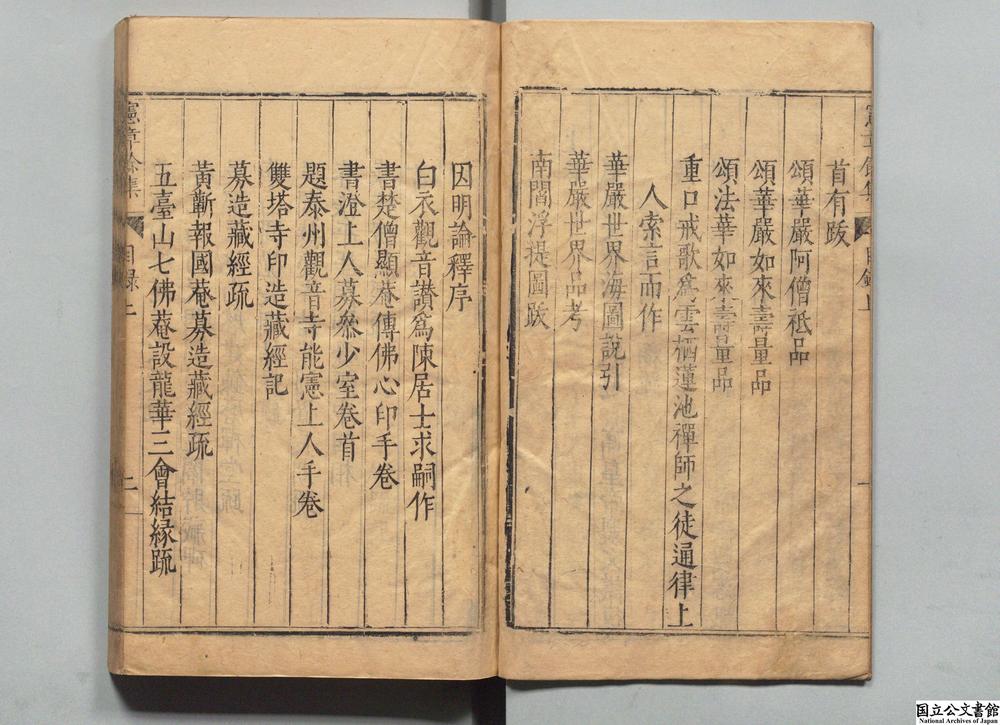 憲章餘集
目錄上
一
首有跋
頌華嚴阿僧祇品
頌華嚴如來壽量品
頌法華如來壽量品
重口戒歌爲雲栖蓮池禪師之徒通律上
人索言而作
華嚴世界海圖說引
華嚴世界品考
南閻浮提圖跋
因明論釋序
白衣觀音讃爲陳居士求嗣作
書楚僧顯菴傳佛心印手卷
書澄上人募叅少室卷首
題泰州觀音寺能憲上人手卷
雙塔寺印造藏經記
募造藏經疏
黃蘄報國菴募造藏經疏
五臺山七佛菴設龍華三會結緣疏
憲章餘集
目錄上
二
国立公文書館
National Archives of Japan